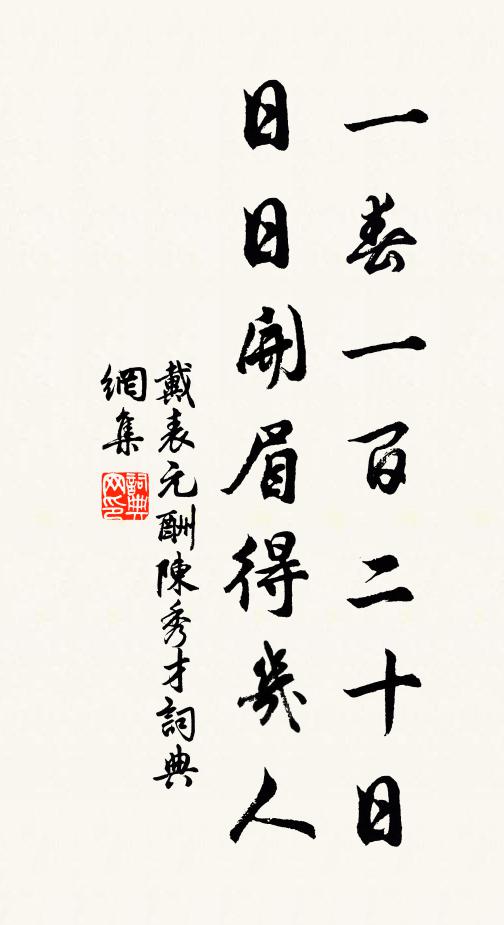 一春一百二十日
日日開眉得幾人
戴表元酬陳秀才詞典
網集
詞典網印